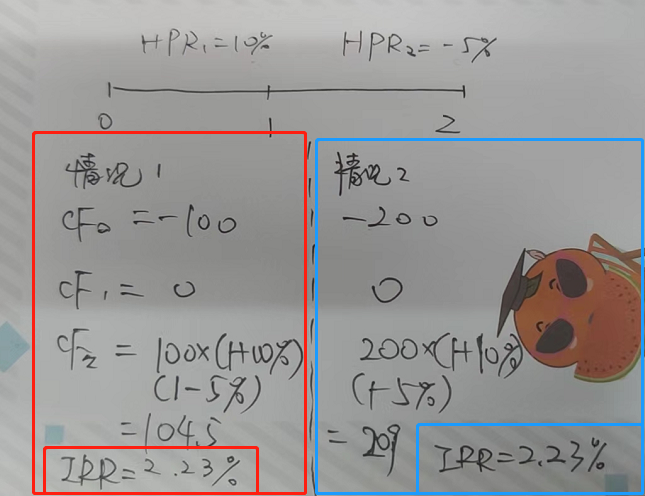 HPR₁=10% HPR₂=-5%
0 1 2
情况1
CF₀=-100
CF₁=0
CF₂=100×(1+10%)
(1-5%)
=104.5
IRR=2.23%
情况2
-200
0
200×(1+10%)
(1-5%)
=209
IRR=2.23%